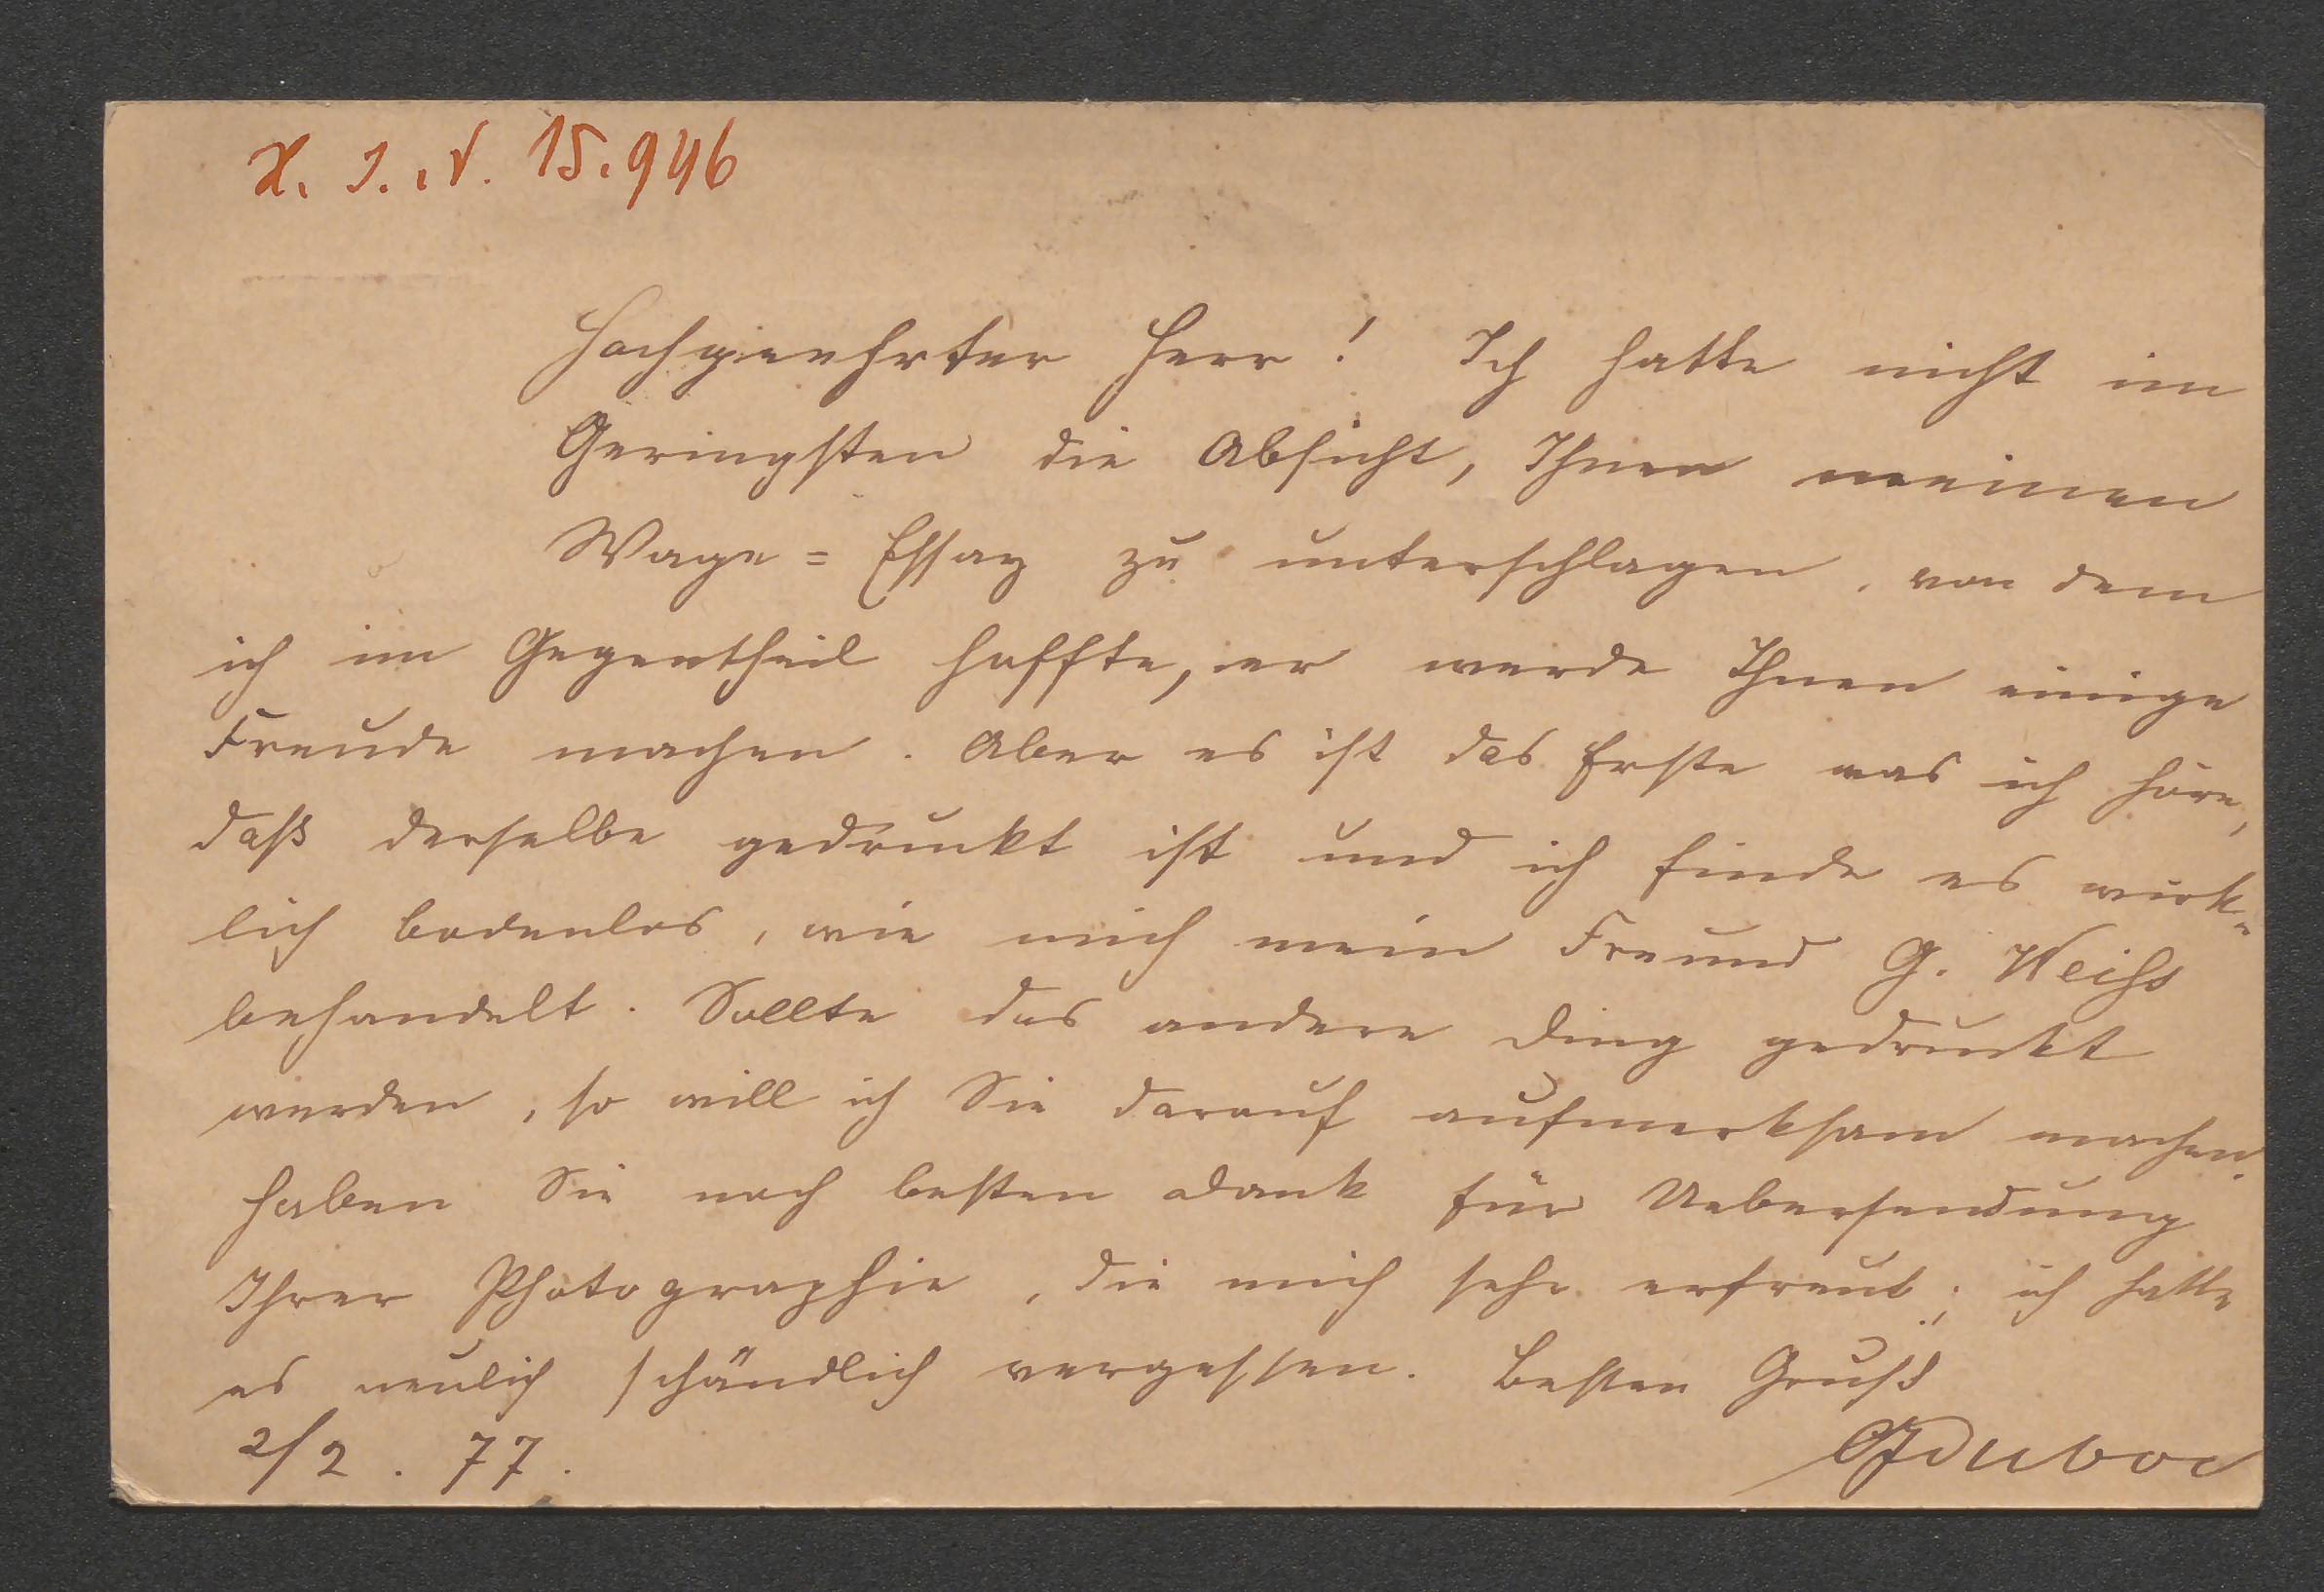 H. I. N. 15.946
Hochgeehrter Herr! Ich hatte nicht im
Geringsten die Absicht, Ihnen meinen
Wage=Essay zu unterschlagen, von dem
ich im Gegentheil hoffte, er werde Ihnen einige
Freude machen. Aber es ist das Erste was ich höre,
daß derselbe gedruckt ist und ich finde es wirk-
lich bodenlos, wie mich mein Freund G. Weiss
behandelt. Sollte das andere Ding gedruckt
werden, so will ich Sie darauf aufmerksam machen.
Haben Sie noch besten Dank für Uebersendung
Ihrer Photographie, die mich sehr erfreut; ich hatte
es neulich schändlich vergessen. Besten Gruß
2/2. 77.
CJDuboc